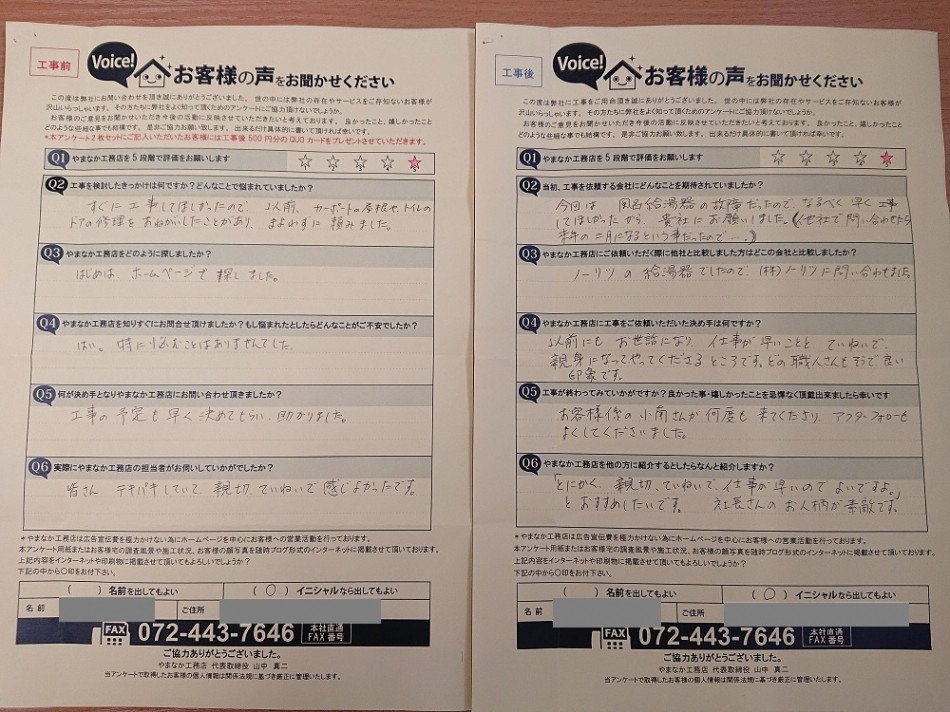 工事前
Voice!
お客様の声をお聞かせください
この度は弊社にお問い合わせを頂き誠にありがとうございました。世の中には弊社の存在やサービスをご存知ないお客様が
沢山いらっしゃいます。その方たちに弊社をよく知って頂くためのアンケートにご協力頂けないでしょうか。
お客様のご意見をお聞かせいただき今後の活動に反映させていただきたいと考えております。良かったこと、嬉しかったこと
どのような些細な事でも結構です。是非ご協力お願い致します。出来るだけ具体的に書いて頂ければ幸いです。
*本アンケート2枚セットにご記入いただいたお客様には工事後500円分のQUOカードをプレゼントさせていただきます。
Q1 やまなか工務店を5段階で評価をお願いします
1 2 3 4 5
Q2 工事を検討したきっかけは何ですか?どんなことで悩まれていましたか?
すぐに工事してほしかったので、以前、カーポートの屋根や、トイレの
ドアの修理をおねがいしたことがあり、まよわずに頼みました。
Q3 やまなか工務店をどのように探しましたか?
はじめは ホームページで探しました。
Q4 やまなか工務店を知りすぐにお問合せ頂けましたか?もし悩まれたとしたらどんなことがご不安でしたか?
はい。特に悩むことはありませんでした。
Q5 何が決め手となりやまなか工務店にお問い合わせ頂きましたか?
工事の予定も早く決めてもらい、助かりました。
Q6 実際にやまなか工務店の担当者がお伺いしていかがでしたか?
皆さん テキパキしていて、親切、ていねいで感じよかったです。
*やまなか工務店は広告宣伝費を極力かけない為にホームページを中心にお客様への営業活動を行っております。
本アンケート用紙またはお客様宅の調査風景や施工状況、お客様の顔写真を随時ブログ形式のインターネットに掲載させて頂いております。
上記内容をインターネットや印刷物に掲載させて頂いてもよろしいでしょうか?
下記の中から○印をお付下さい。
( )名前を出してもよい (○)イニシャルなら出してもよい
名前 ご住所
FAX 072-443-7646 本社直通 FAX番号
ご協力ありがとうございました。
やまなか工務店 代表取締役 山中 真二
当アンケートで取得したお客様の個人情報は関係法規に基づき厳正に管理いたします。
工事後
Voice!
お客様の声をお聞かせください
この度は弊社に工事をご用命頂き誠にありがとうございました。世の中には弊社の存在やサービスをご存知ないお客様が
沢山いらっしゃいます。その方たちに弊社をよく知って頂くためのアンケートにご協力頂けないでしょうか。
お客様のご意見をお聞かせいただき今後の活動に反映させていただきたいと考えております。良かったこと、嬉しかったこと
どのような些細な事でも結構です。是非ご協力お願い致します。出来るだけ具体的に書いて頂ければ幸いです。
Q1 やまなか工務店を5段階で評価をお願いします
1 2 3 4 5
Q2 当初、工事を依頼する会社にどんなことを期待されていましたか?
今回は 風呂給湯器の故障だったので、なるべく早く工事
してほしかったから、貴社にお願いしました。(他社で問い合わせたら
来年の二月になるという事だったので…。)
Q3 やまなか工務店にご依頼いただく際に他社と比較しました方はどこの会社と比較しましたか?
ノーリツの給湯器でしたので、(株)ノーリツに問い合わせました
Q4 やまなか工務店に工事をご依頼いただいた決め手は何ですか?
以前にもお世話になり、仕事が早いことと ていねいで、
親身になってやってくださるところです。どの職人さんもそうで良い
印象です。
Q5 工事が終わってみていかがですか?良かった事・嬉しかったことを忌憚なく頂戴出来ましたら幸いです
お客様係の小南さんが何度も来てくださり、アフターフォローも
よくしてくださいました。
Q6 やまなか工務店を他の方に紹介するとしたらなんと紹介しますか?
「とにかく、親切、ていねいで、仕事が早いのでよいですよ。」
とおすすめしたいです。 社長さんのお人柄が素敵です。
*やまなか工務店は広告宣伝費を極力かけない為にホームページを中心にお客様への営業活動を行っております。
本アンケート用紙またはお客様宅の調査風景や施工状況、お客様の顔写真を随時ブログ形式のインターネットに掲載させて頂いております。
上記内容をインターネットや印刷物に掲載させて頂いてもよろしいでしょうか?
下記の中から○印をお付下さい。
( )名前を出してもよい (○)イニシャルなら出してもよい
名前 ご住所
FAX 072-443-7646 本社直通 FAX番号
ご協力ありがとうございました。
やまなか工務店 代表取締役 山中 真二
当アンケートで取得したお客様の個人情報は関係法規に基づき厳正に管理いたします。